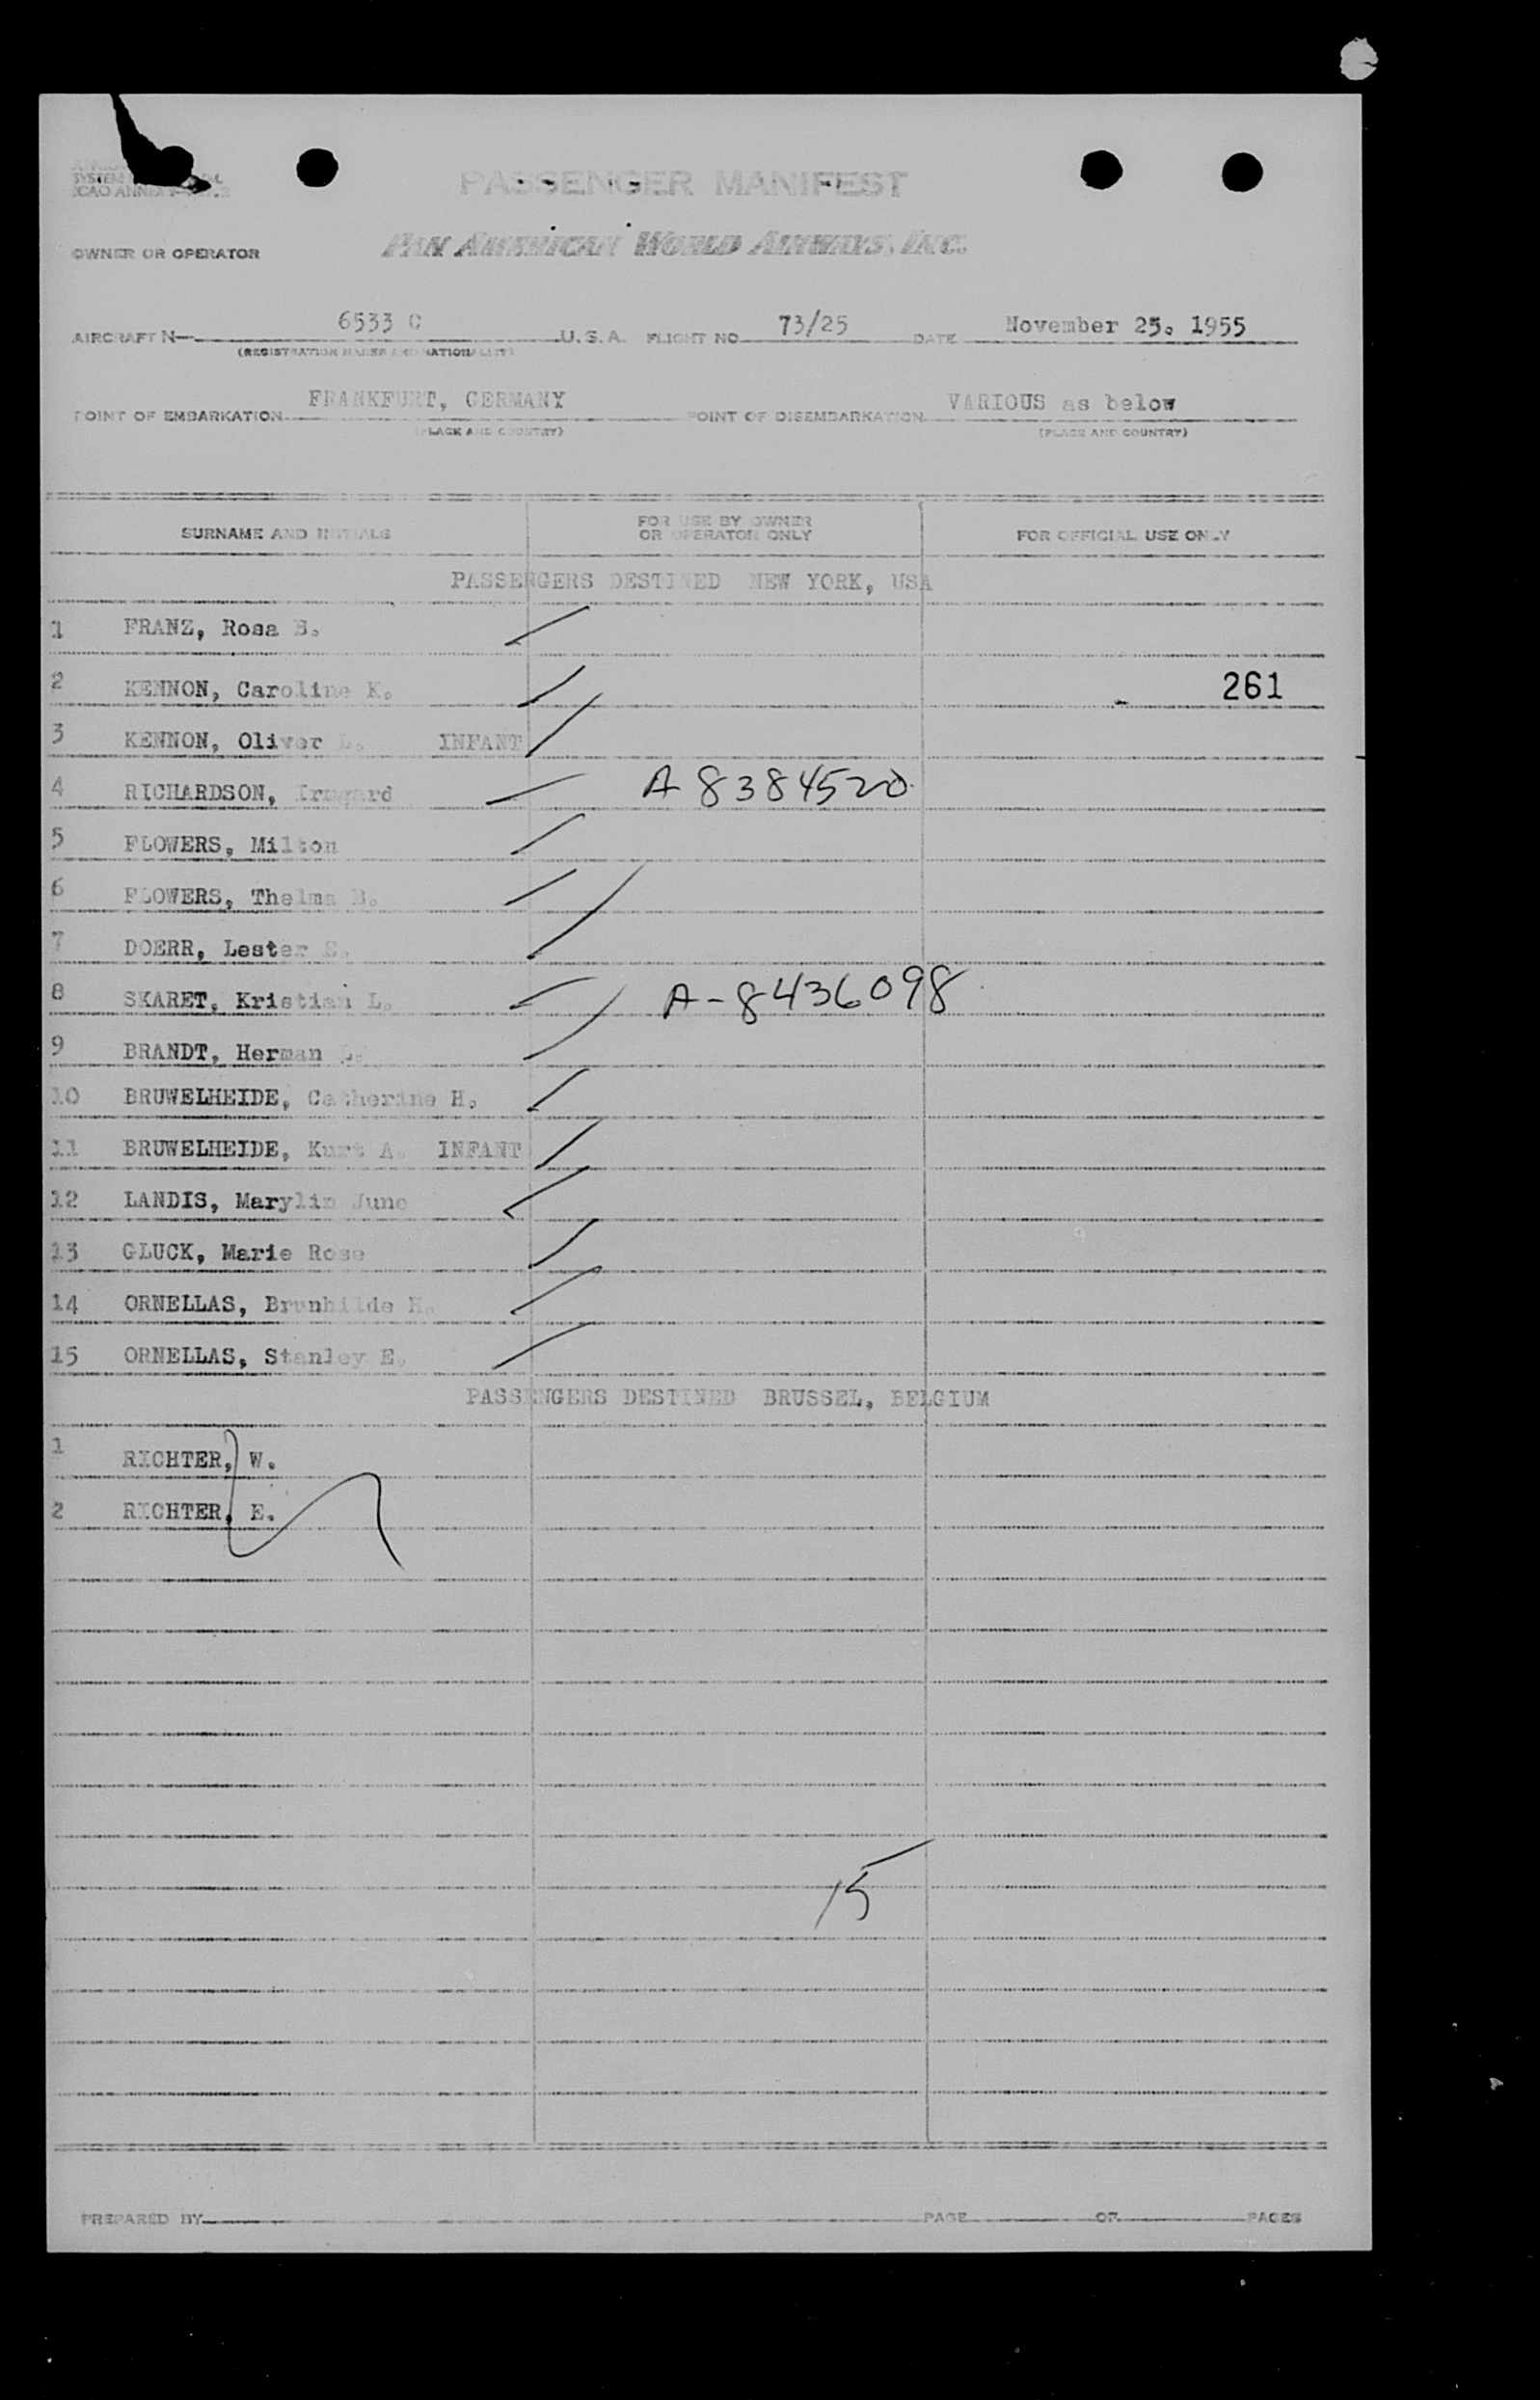 SYSTEM
ICAO ANNEX
PASSENGER MANIFEST
OWNER OR OPERATOR PAN AMERICAN WORLD AIRWAYS, INC.
AIRCRAFT N— 6533 C U. S. A. FLIGHT NO. 73/25 DATE November 25. 1955
(REGISTRATION MARKS AND NATIONALITY)
POINT OF EMBARKATION FRANKFURT, GERMANY POINT OF DISEMBARKATION VARIOUS as below
(PLACE AND COUNTRY) (PLACE AND COUNTRY)
SURNAME AND INITIALS FOR USE BY OWNER OR OPERATOR ONLY FOR OFFICIAL USE ONLY
PASSENGERS DESTINED NEW YORK, USA
1 FRANZ, Rosa
2 KENNON, Caroline K. 261
3 KENNON, Oliver L. INFANT
4 RICHARDSON, Irmgard A 8384520
5 FLOWERS, Milton
6 FLOWERS, Thelma
7 DOERR, Lester
8 SKARET, Kristian L. A-8436098
9 BRANDT, Herman
10 BRUWELHEIDE, Catherine H.
11 BRUWELHEIDE, Kurt A. INFANT
12 LANDIS, Marylin June
13 GLUCK, Marie Rose
14 ORNELLAS, Brunhilde H.
15 ORNELLAS, Stanley E.
PASSENGERS DESTINED BRUSSEL, BELGIUM
1 RICHTER, W.
2 RICHTER, E.
15
PREPARED BY PAGE OF PAGES